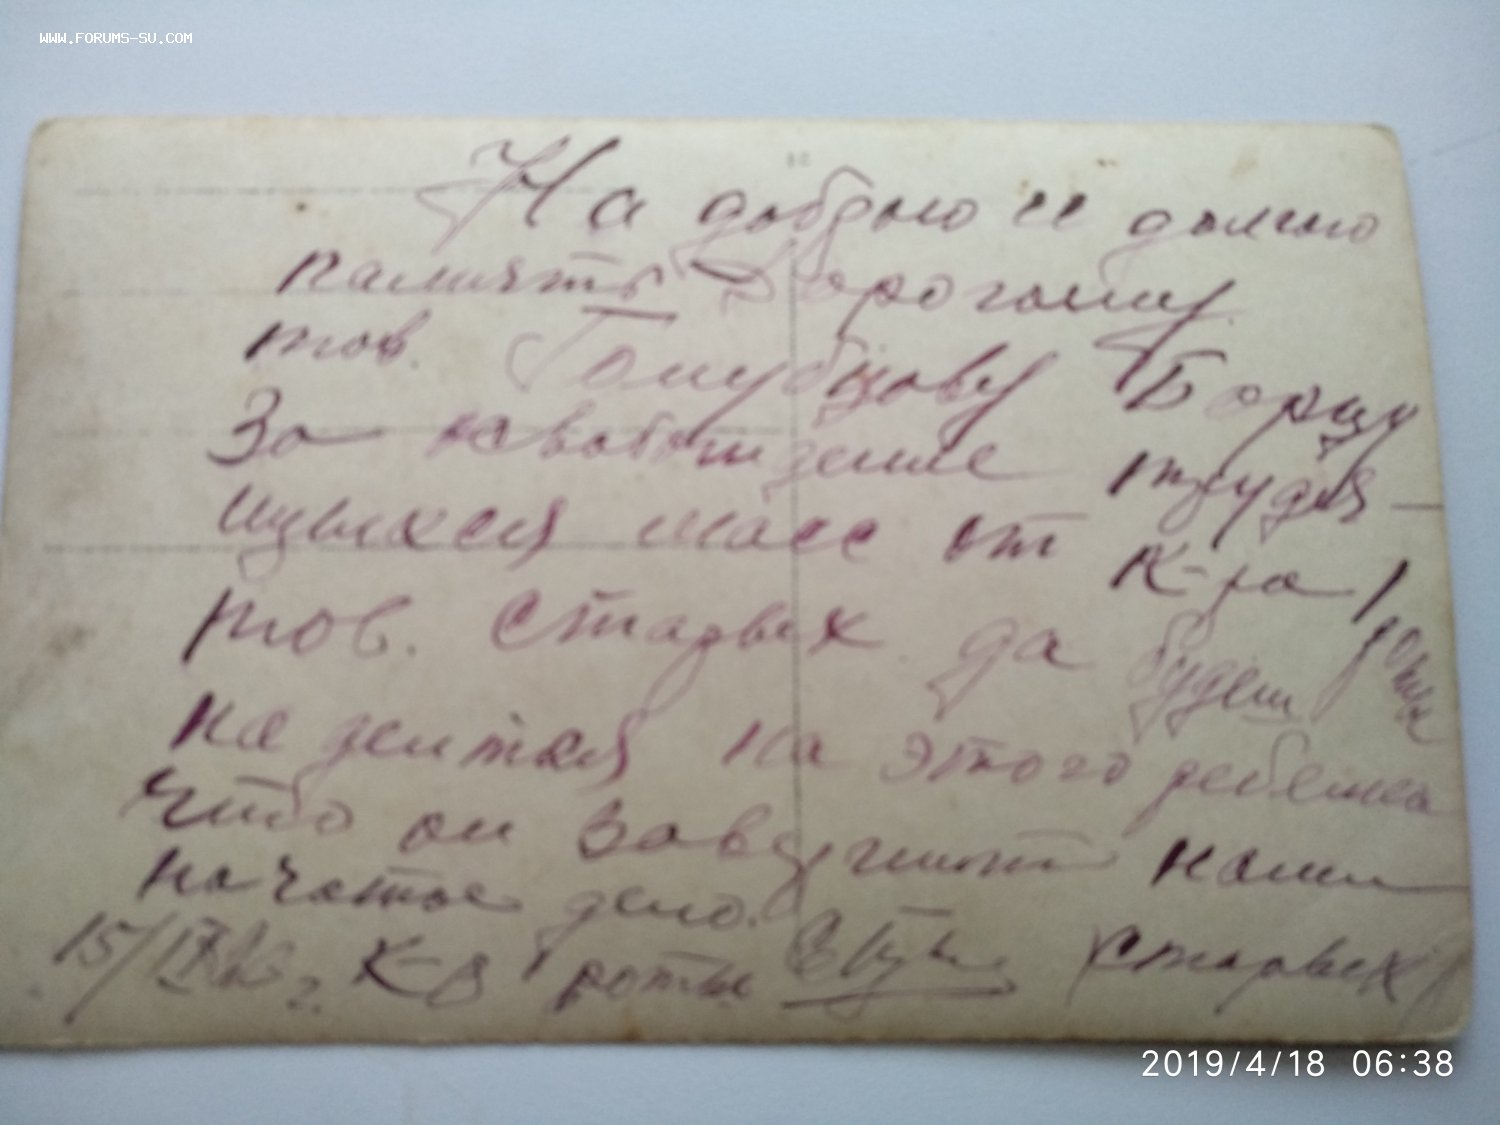 WWW.FORUMS-SU.COM
На добрую и долгую
память Дорогому
тов. Голубцову Борцу
За освобождение трудя-
щыхся масс от К-ра 1 роты
тов. Старых да будем
надеится на этого ребенка
что он завершит наше
начатое дело.
15/IV г. К-р 1 роты (Старых)
2019/4/18 06:38